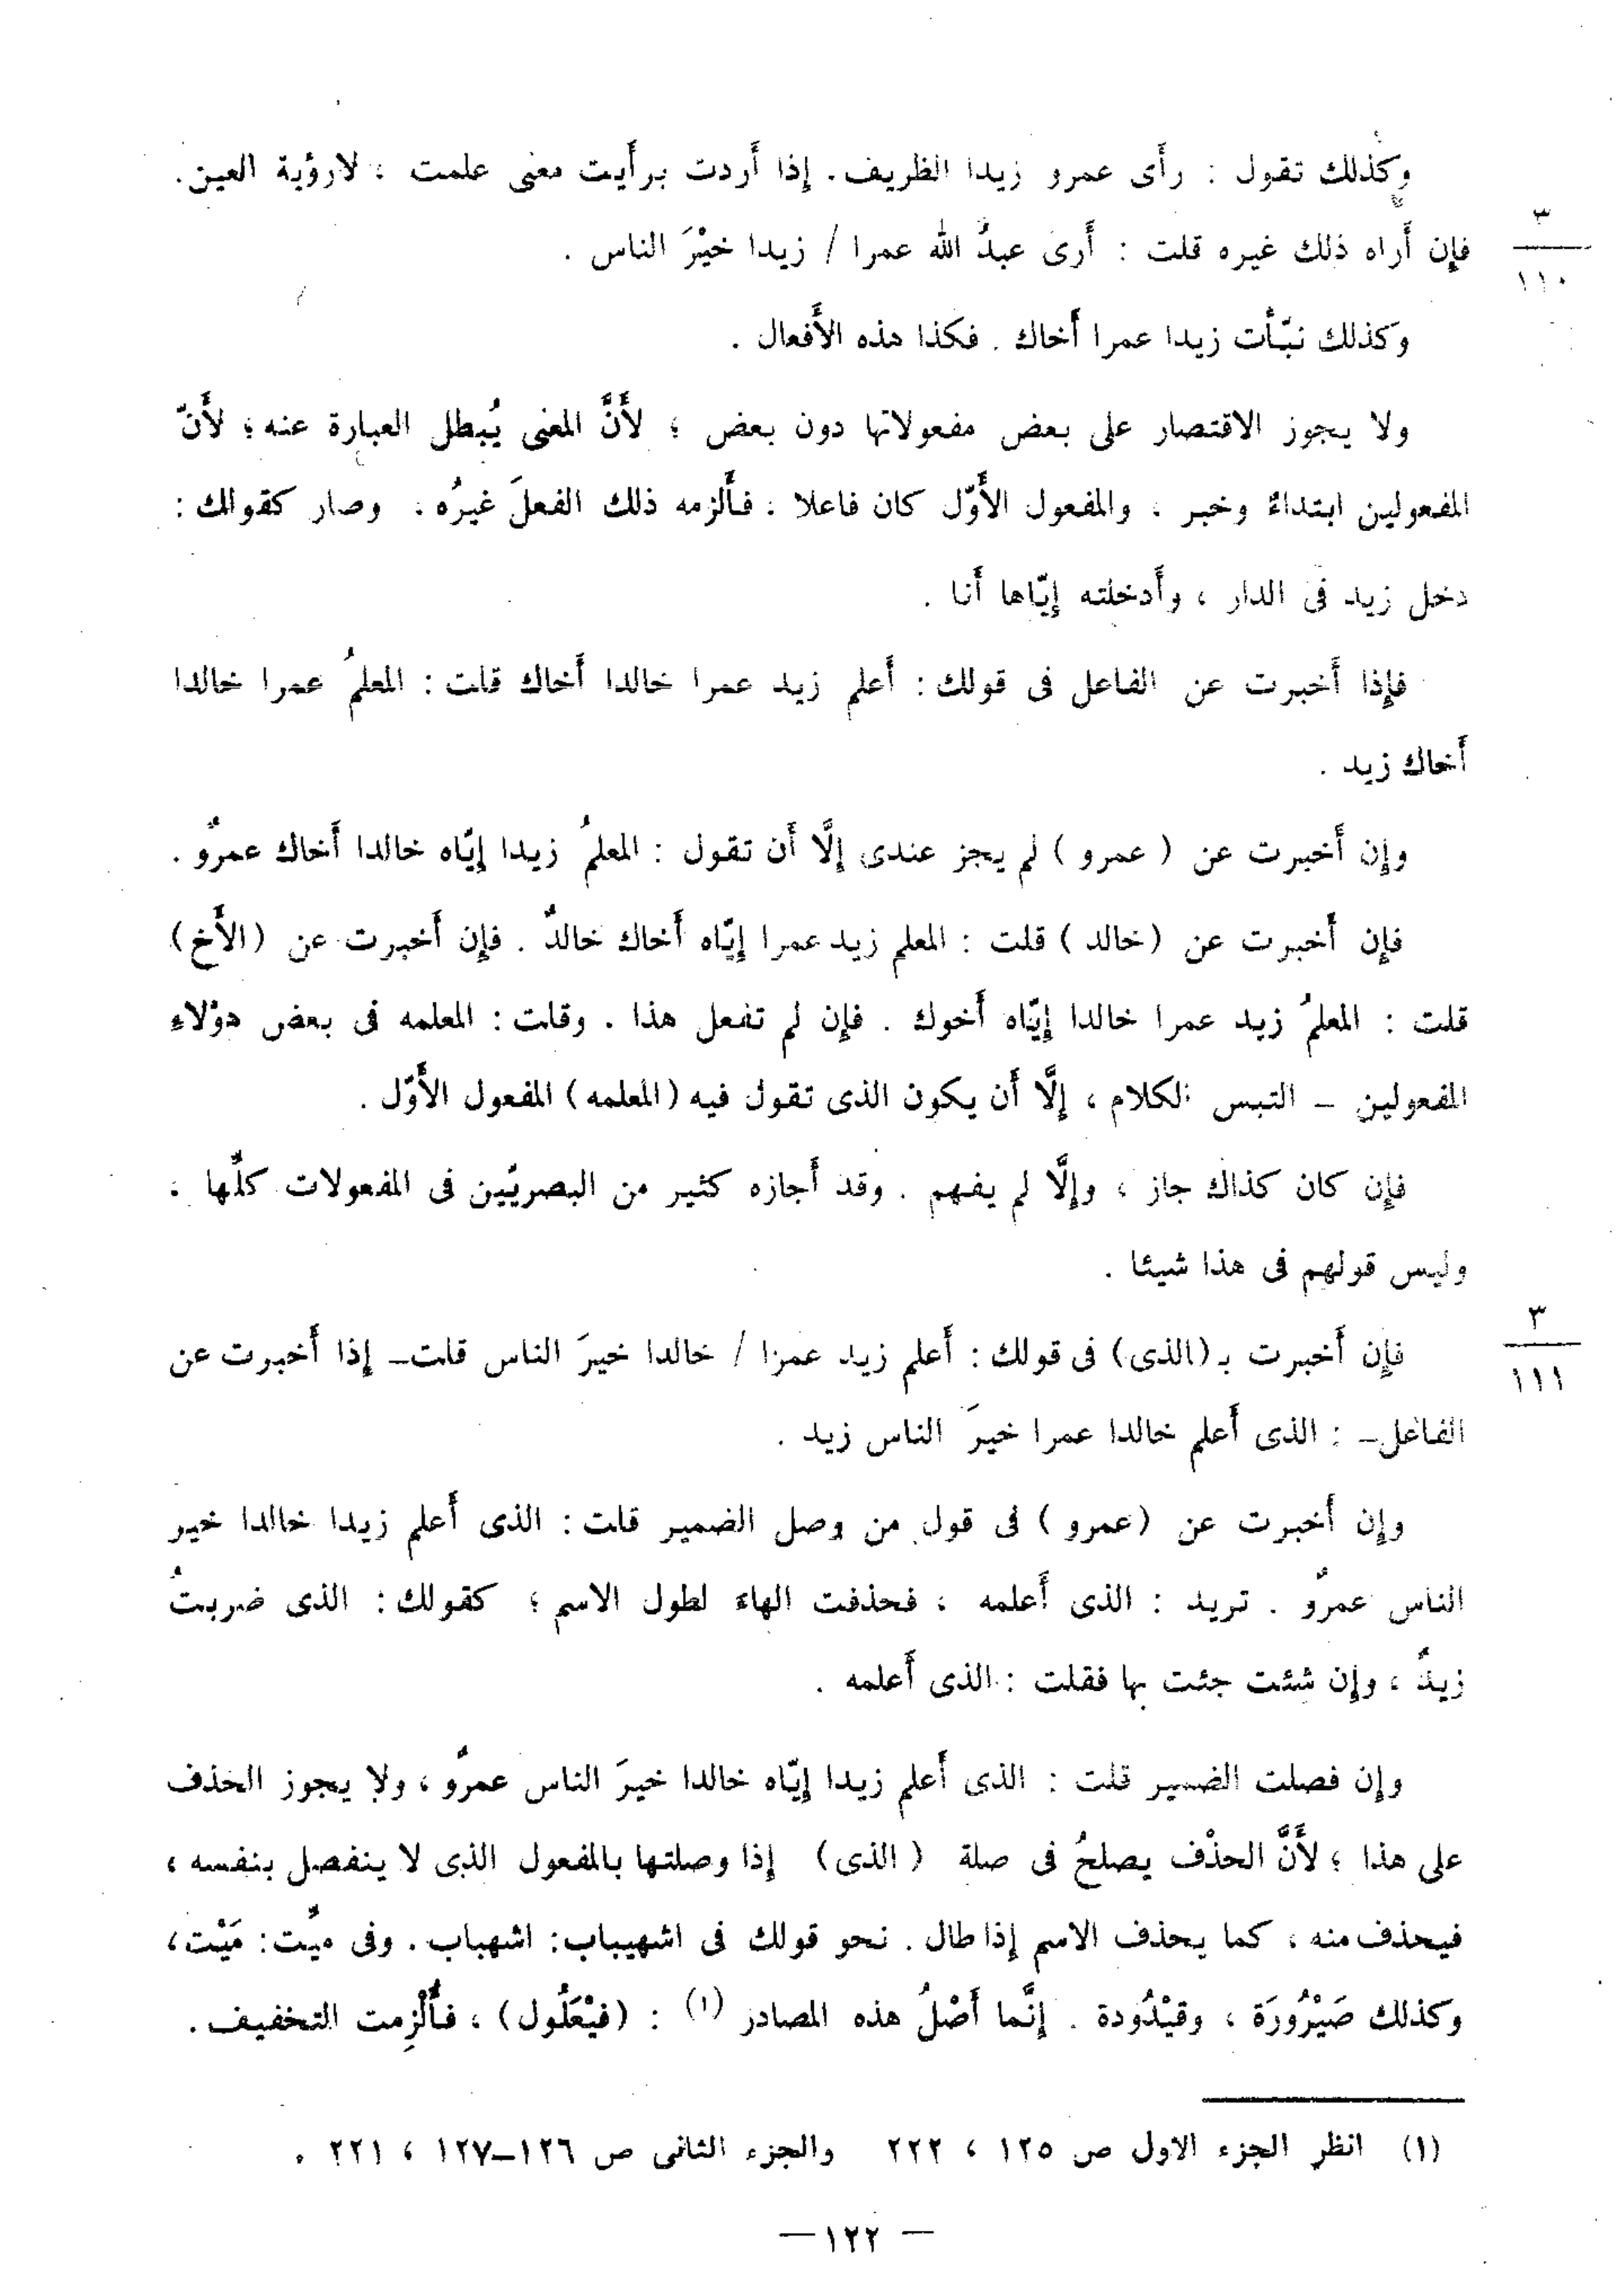 وكذلك تقول : رأَى عمرو زيدا الظريف. إذا أَردت برأَيت معنى علمت ، لارؤية العين.
٣
فإن أَراه ذلك غيره قلت : أَرى عبدُ الله عمرا / زيدا خيْرَ الناس .
١١٠
وكذلك نبّأْت زيدا عمرا أَخاك . فكذا هذه الأَفعال .
ولا يجوز الاقتصار على بعض مفعولاتها دون بعض ؛ لأَنَّ المعنى يُبطل العبارة عنه ؛ لأَنّ
المفعولين ابتداءٌ وخبر ، والمفعول الأَوّل كان فاعلا ، فأَلزمه ذلك الفعلَ غيرُه ، وصار كقولك :
دخل زيد فى الدار ، وأَدخلته إيّاها أَنا .
فإذا أَخبرت عن الفاعل فى قولك : أَعلم زيد عمرا خالدا أَخاك قلت : المعلمُ عمرا خالدا
أَخاك زيد .
وإن أَخبرت عن ( عمرو ) لم يجز عندى إلَّا أَن تقول : المعلمُ زيدا إيّاه خالدا أَخاك عمرٌو .
فإن أَخبرت عن (خالد ) قلت : المعلم زيد عمرا إيّاه أَخاك خالدٌ . فإن أَخبرت عن (الأَخ)
قلت : المعلمُ زيد عمرا خالدا إيّاه أَخوك . فإن لم تفعل هذا . وقلت : المعلمه فى بعض هؤلاءِ
المفعولين – التبس الكلام ، إلَّا أَن يكون الذى تقول فيه (المعلمه) المفعول الأَوّل .
فإن كان كذاك جاز ، وإلَّا لم يفهم . وقد أَجازه كثير من البصريّين فى المفعولات كلِّها ،
وليس قولهم فى هذا شيئا .
٣
فإن أَخبرت بـ (الذى) فى قولك : أَعلم زيد عمرا / خالدا خيرَ الناس قلت – إذا أَخبرت عن
١١١
الفاعل – : الذى أَعلم خالدا عمرا خيرَ الناس زيد .
وإن أَخبرت عن (عمرو ) فى قول من وصل الضمير قلت : الذى أَعلم زيدا خالدا خير
الناس عمرٌو . تريد : الذى أَعلمه ، فحذفت الهاءَ لطول الاسم ؛ كقولك : الذى ضربتُ
زيدٌ ، وإن شئت جئت بها فقلت : الذى أَعلمه .
وإن فصلت الضمير قلت : الذى أَعلم زيدا إيّاه خالدا خيرَ الناس عمرٌو ، ولا يجوز الحذف
على هذا ؛ لأَنَّ الحذْف يصلحُ فى صلة ( الذى) إذا وصلتها بالمفعول الذى لا ينفصل بنفسه ،
فيحذف منه ، كما يحذف الاسم إذا طال . نحو قولك فى اشهيباب : اشهباب . وفى ميِّت : مَيْت ،
وكذلك صَيْرُورَة ، وقيْدُودة . إنَّما أَصْلُ هذه المصادر (١) : (فيْعَلُول) ، فأُلْزِمت التخفيف .
(١) انظر الجزء الاول ص ١٢٥ ، ٢٢٢ والجزء الثانى ص ١٢٦–١٢٧ ، ٢٢١ .
— ١٢٢ —